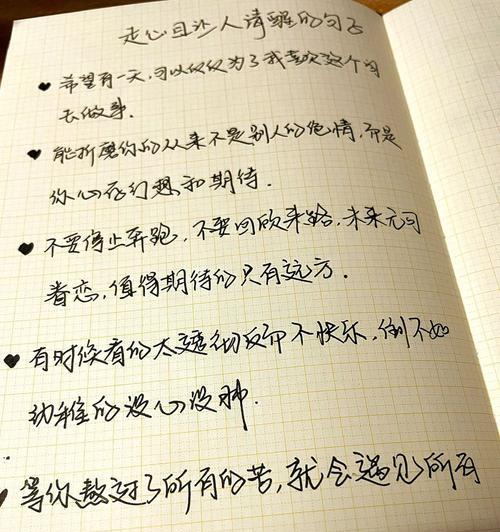 走心且让人清醒的句子
希望有一天,可以仅仅为了我喜欢这个词
去做事.
能折磨你的从来不是别人的绝情,而是
你心存幻想和期待.
不要停止奔跑,不要回顾来路,未来无可
眷恋,值得期待的只有远方.
有时候看的太透彻反而不快乐,倒不如
幼稚的没心没肺.
等你熬过了所有的苦,就会遇见所有